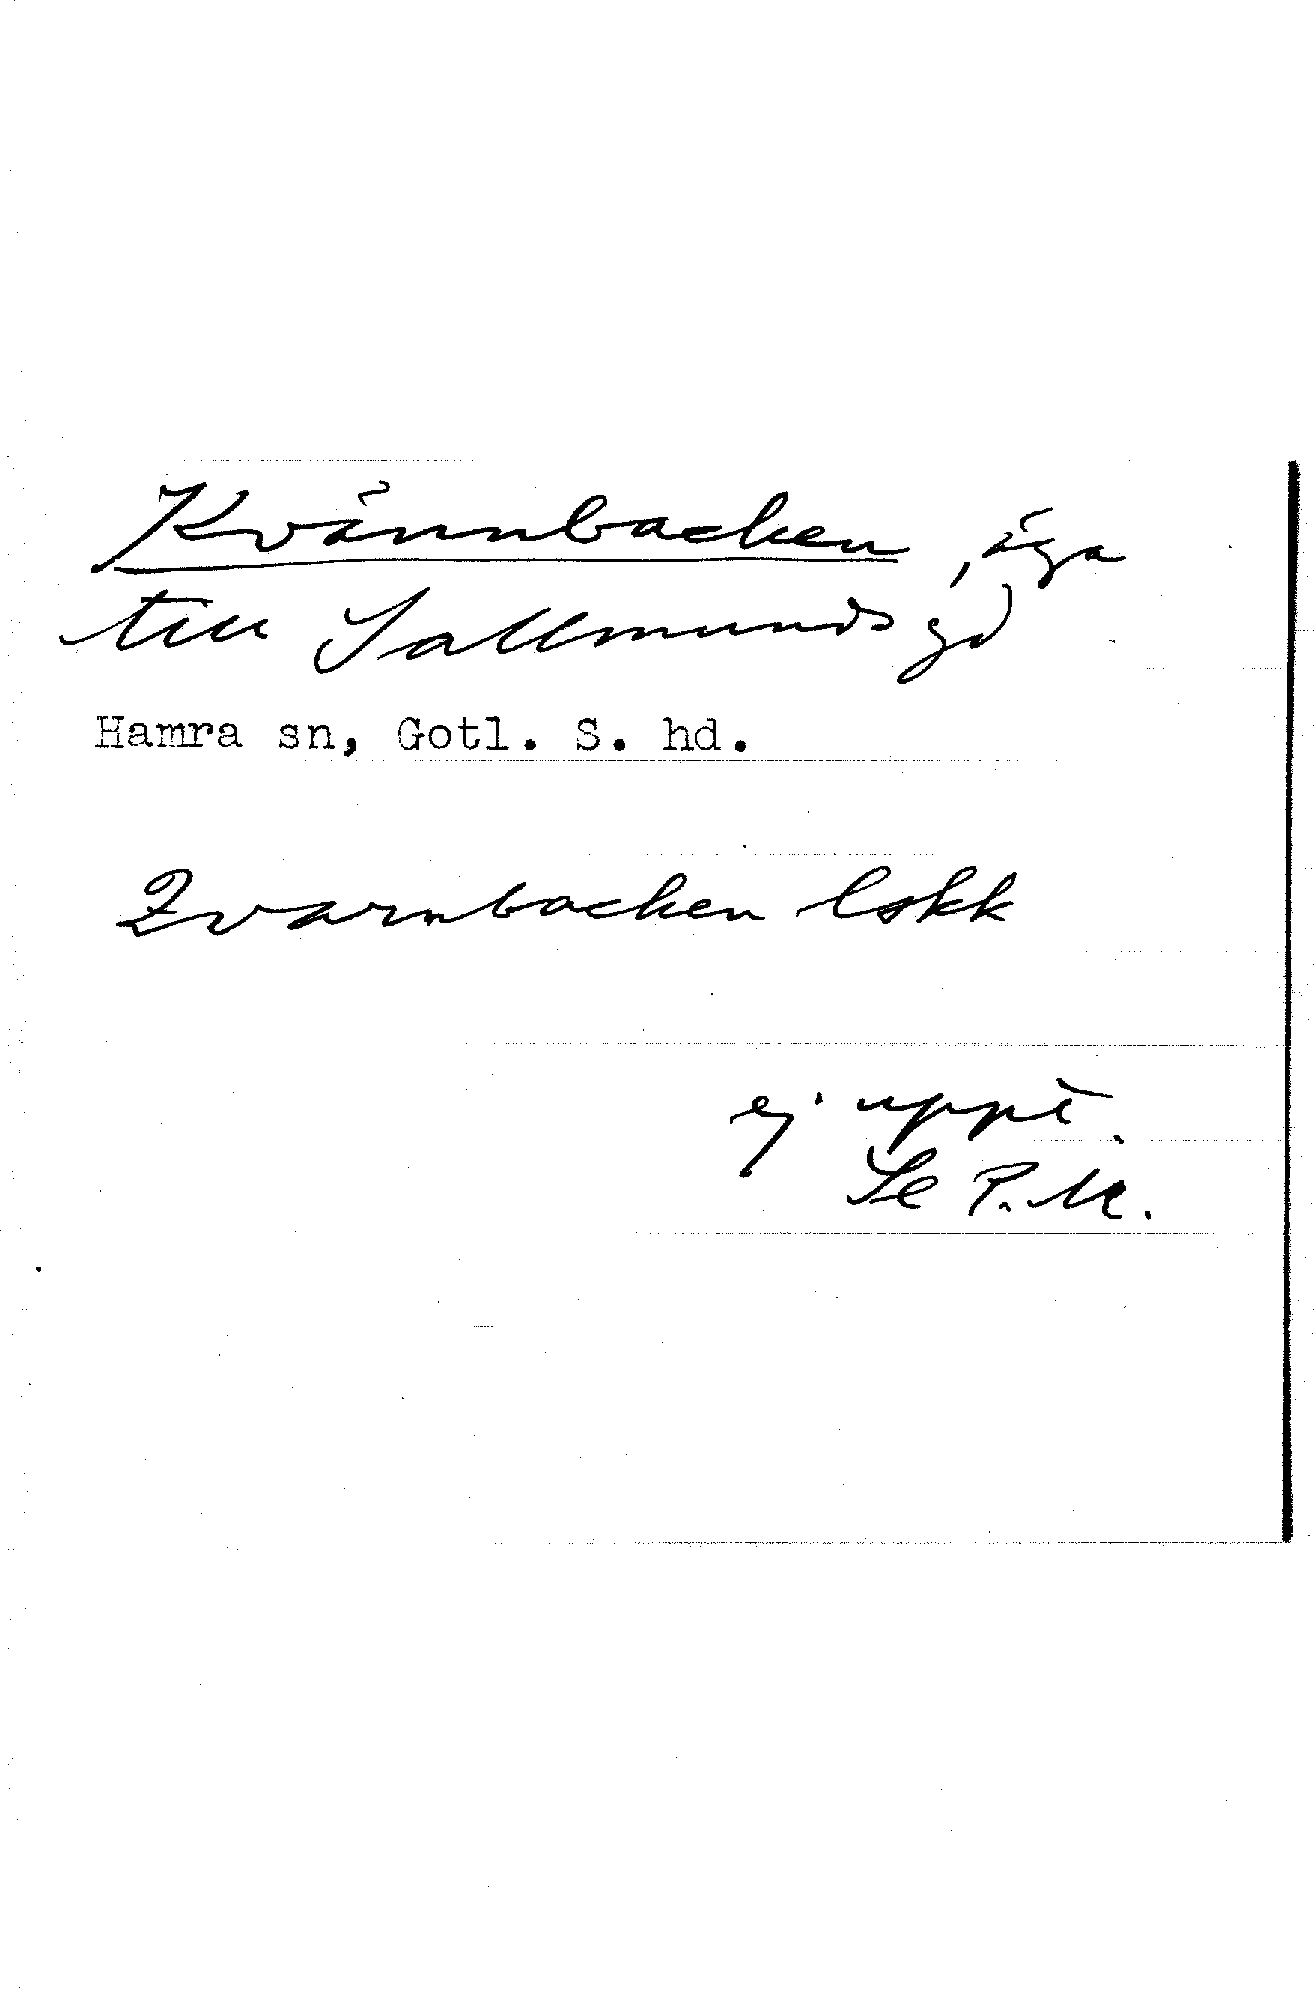 Kvännbacken, äga
till Sallmunds gd
Hamra sn, Gotl. S. hd.
Qvarnbacken lskk
ej uppt.
Se P.M.